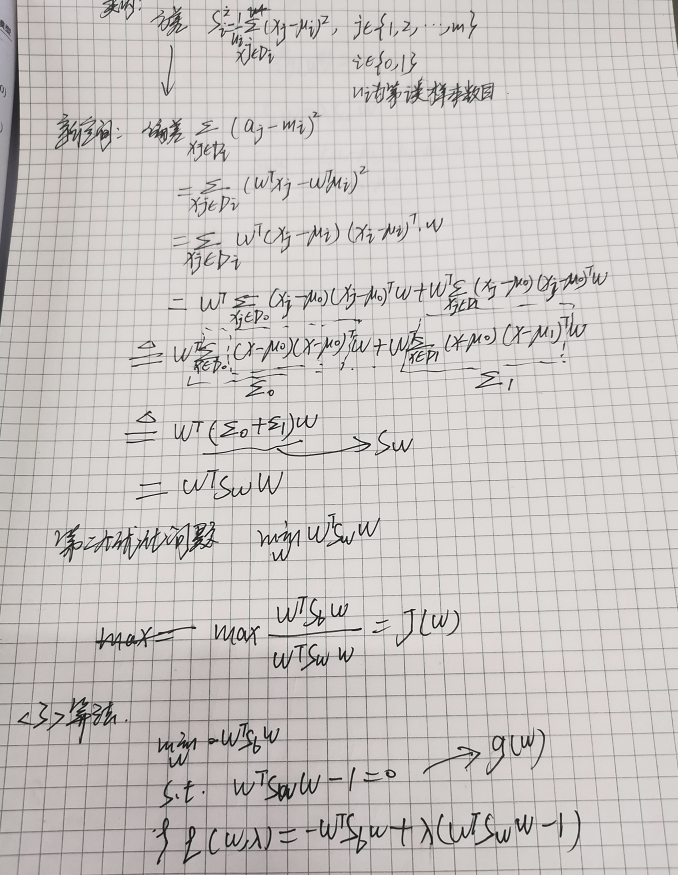 方差 S_i^2 = \frac{1}{n_i} \sum_{x_j∈D_i} (x_j-μ_i)^2, j∈{1,2,…,m}
i∈{0,1}
n_i为第i类样本数目
新空间: 方差 \sum_{x_j∈D_i} (a_j-m_i)^2
= \sum_{x_j∈D_i} (W^Tx_j-W^Tμ_i)^2
= \sum_{x_j∈D_i} W^T(x_j-μ_i)(x_i-μ_i)^T·w
= W^T \sum_{x_j∈D_0} (x_j-μ_0)(x_j-μ_0)^Tw + W^T \sum_{x_j∈D_1} (x_j-μ_0)(x_j-μ_0)^Tw
≜ W^T \sum_{x∈D_0} (x-μ_0)(x-μ_0)^Tw + W^T \sum_{x∈D_1} (x-μ_0)(x-μ_1)^Tw
Σ_0 Σ_1
≜ W^T(Σ_0+Σ_1)w → S_w
= W^TS_wW
第二个优化问题 \min_w W^TS_wW
max= max \frac{W^TS_bw}{W^TS_ww} = J(w)
<3>算法.
\min_w -W^TS_bw
s.t. W^TS_wW-1=0 → g(w)
L(w,λ)=-W^TS_bw+λ(W^TS_wW-1)